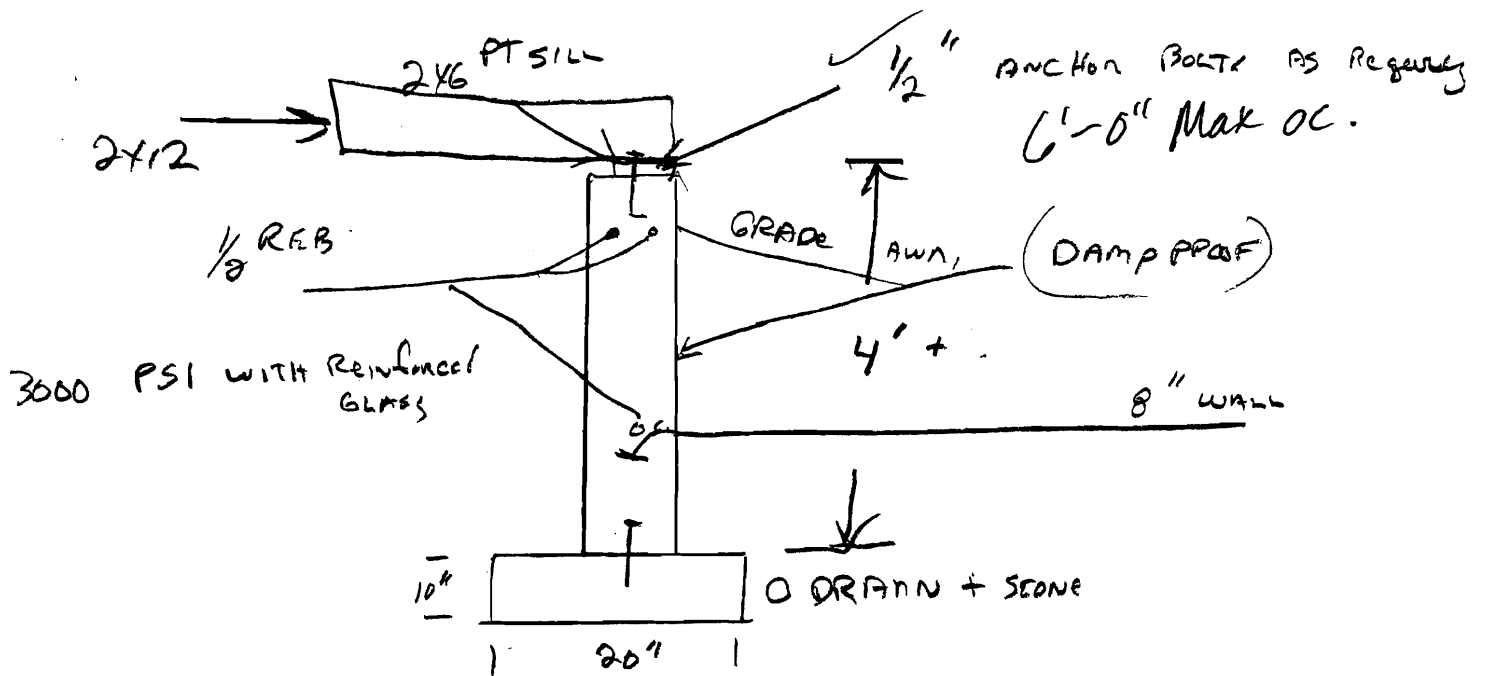 PT SILL
2X6
1/2" ANCHOR BOLTS AS Required
6'-0" Max OC.
2X12
1/2 REB
GRADE
(DAMP PROOF)
4' +
3000 PSI WITH Reinforced
GLASS
8" WALL
10"
O DRAIN + STONE
20"